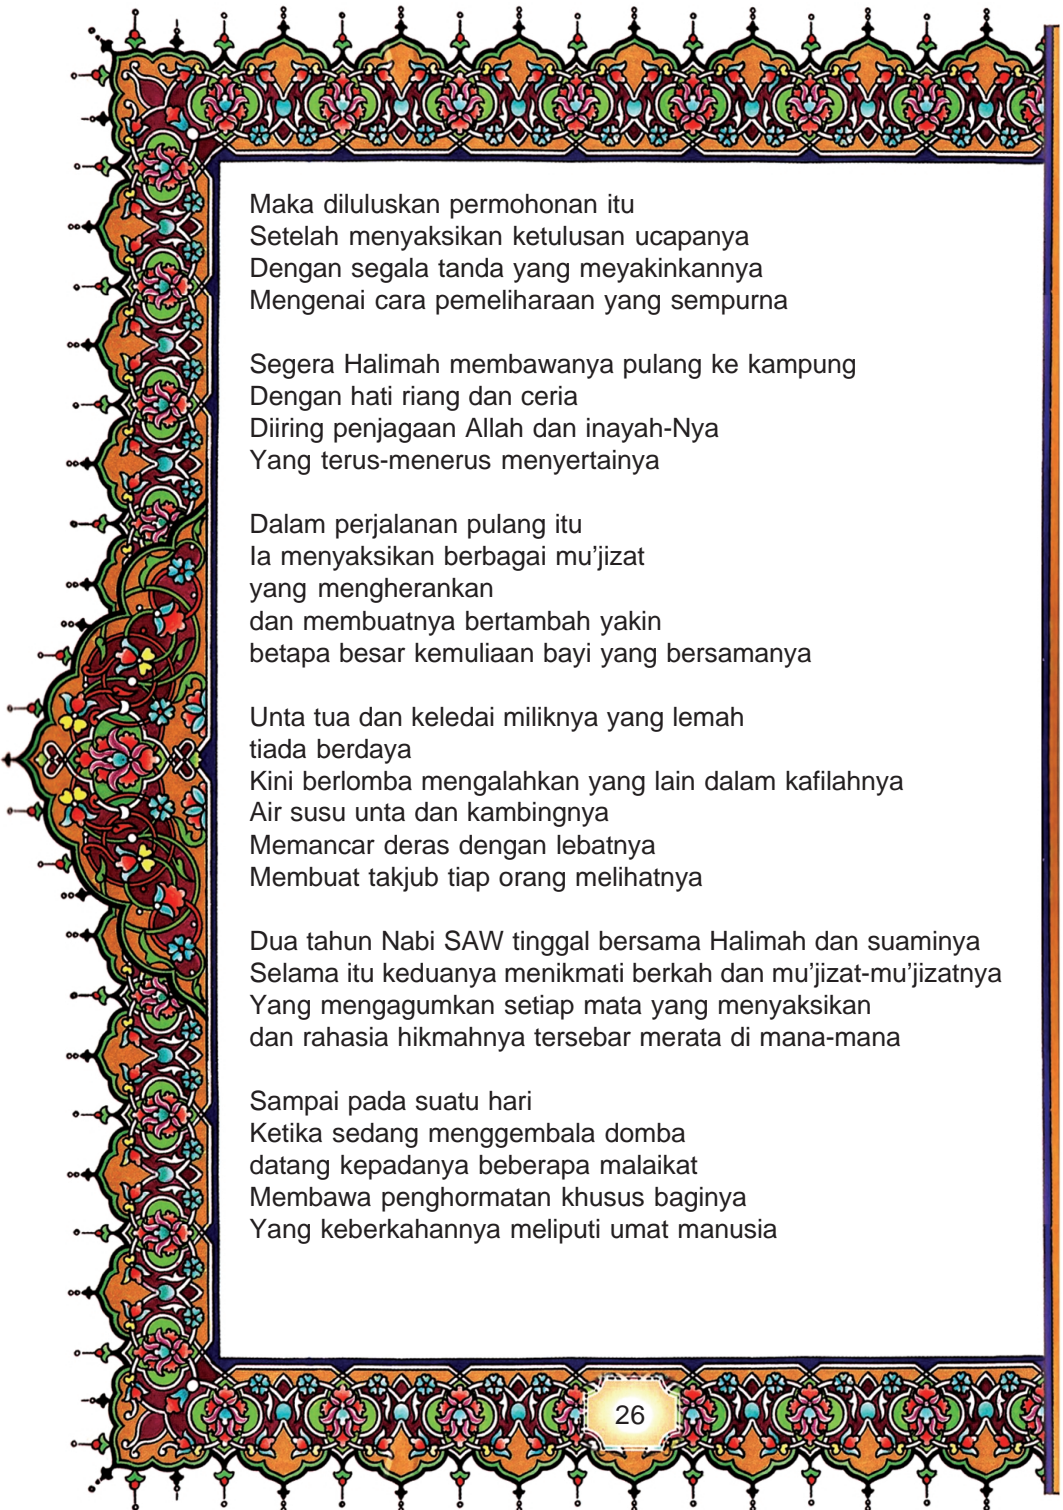 Maka diluluskan permohonan itu
Setelah menyaksikan ketulusan ucapanya
Dengan segala tanda yang meyakinkannya
Mengenai cara pemeliharaan yang sempurna

Segera Halimah membawanya pulang ke kampung
Dengan hati riang dan ceria
Diiring penjagaan Allah dan inayah-Nya
Yang terus-menerus menyertainya

Dalam perjalanan pulang itu
Ia menyaksikan berbagai mu’jizat
yang mengherankan
dan membuatnya bertambah yakin
betapa besar kemuliaan bayi yang bersamanya

Unta tua dan keledai miliknya yang lemah
tiada berdaya
Kini berlomba mengalahkan yang lain dalam kafilahnya
Air susu unta dan kambingnya
Memancar deras dengan lebatnya
Membuat takjub tiap orang melihatnya

Dua tahun Nabi SAW tinggal bersama Halimah dan suaminya
Selama itu keduanya menikmati berkah dan mu’jizat-mu’jizatnya
Yang mengagumkan setiap mata yang menyaksikan
dan rahasia hikmahnya tersebar merata di mana-mana

Sampai pada suatu hari
Ketika sedang menggembala domba
datang kepadanya beberapa malaikat
Membawa penghormatan khusus baginya
Yang keberkahannya meliputi umat manusia

26